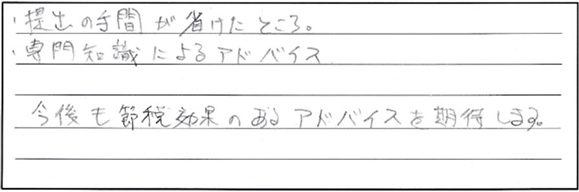 ・提出の手間が省けたところ。
・専門知識によるアドバイス
今後も節税効果のあるアドバイスを期待します。